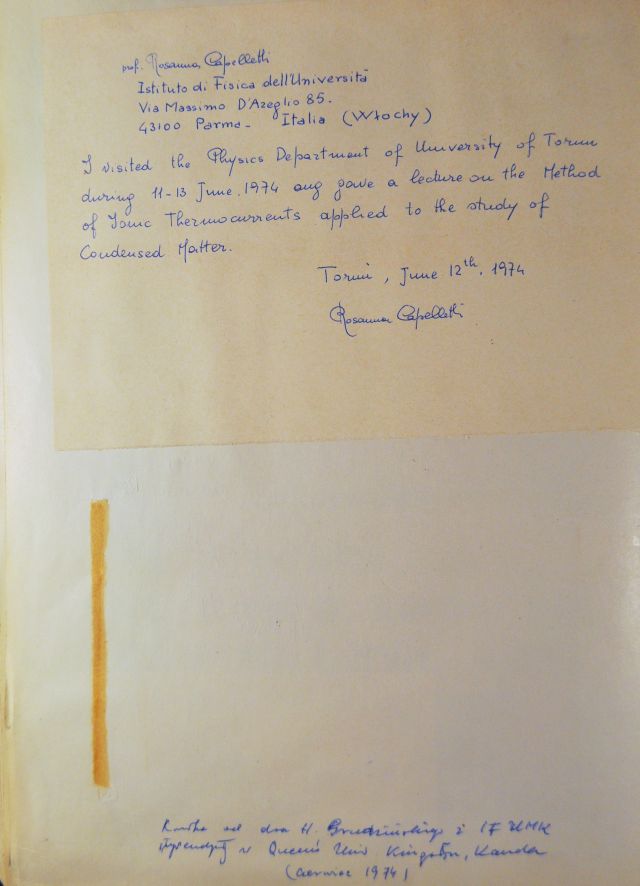 prof. Rosanna Capelletti
Istituto di Fisica dell'Università
Via Massimo D'Azeglio 85.
43100 Parma - Italia (Włochy)
I visited the Physics Department of University of Torun
during 11-13 June 1974 ang gave a lecture on the Method
of Ionic Thermocurrents applied to the study of
Condensed Matter.
Torun, June 12th, 1974
Rosanna Capelletti
od dra H. z IF UMK
w Queens Univ. Kingston, Kanada
(czerwiec 1974)